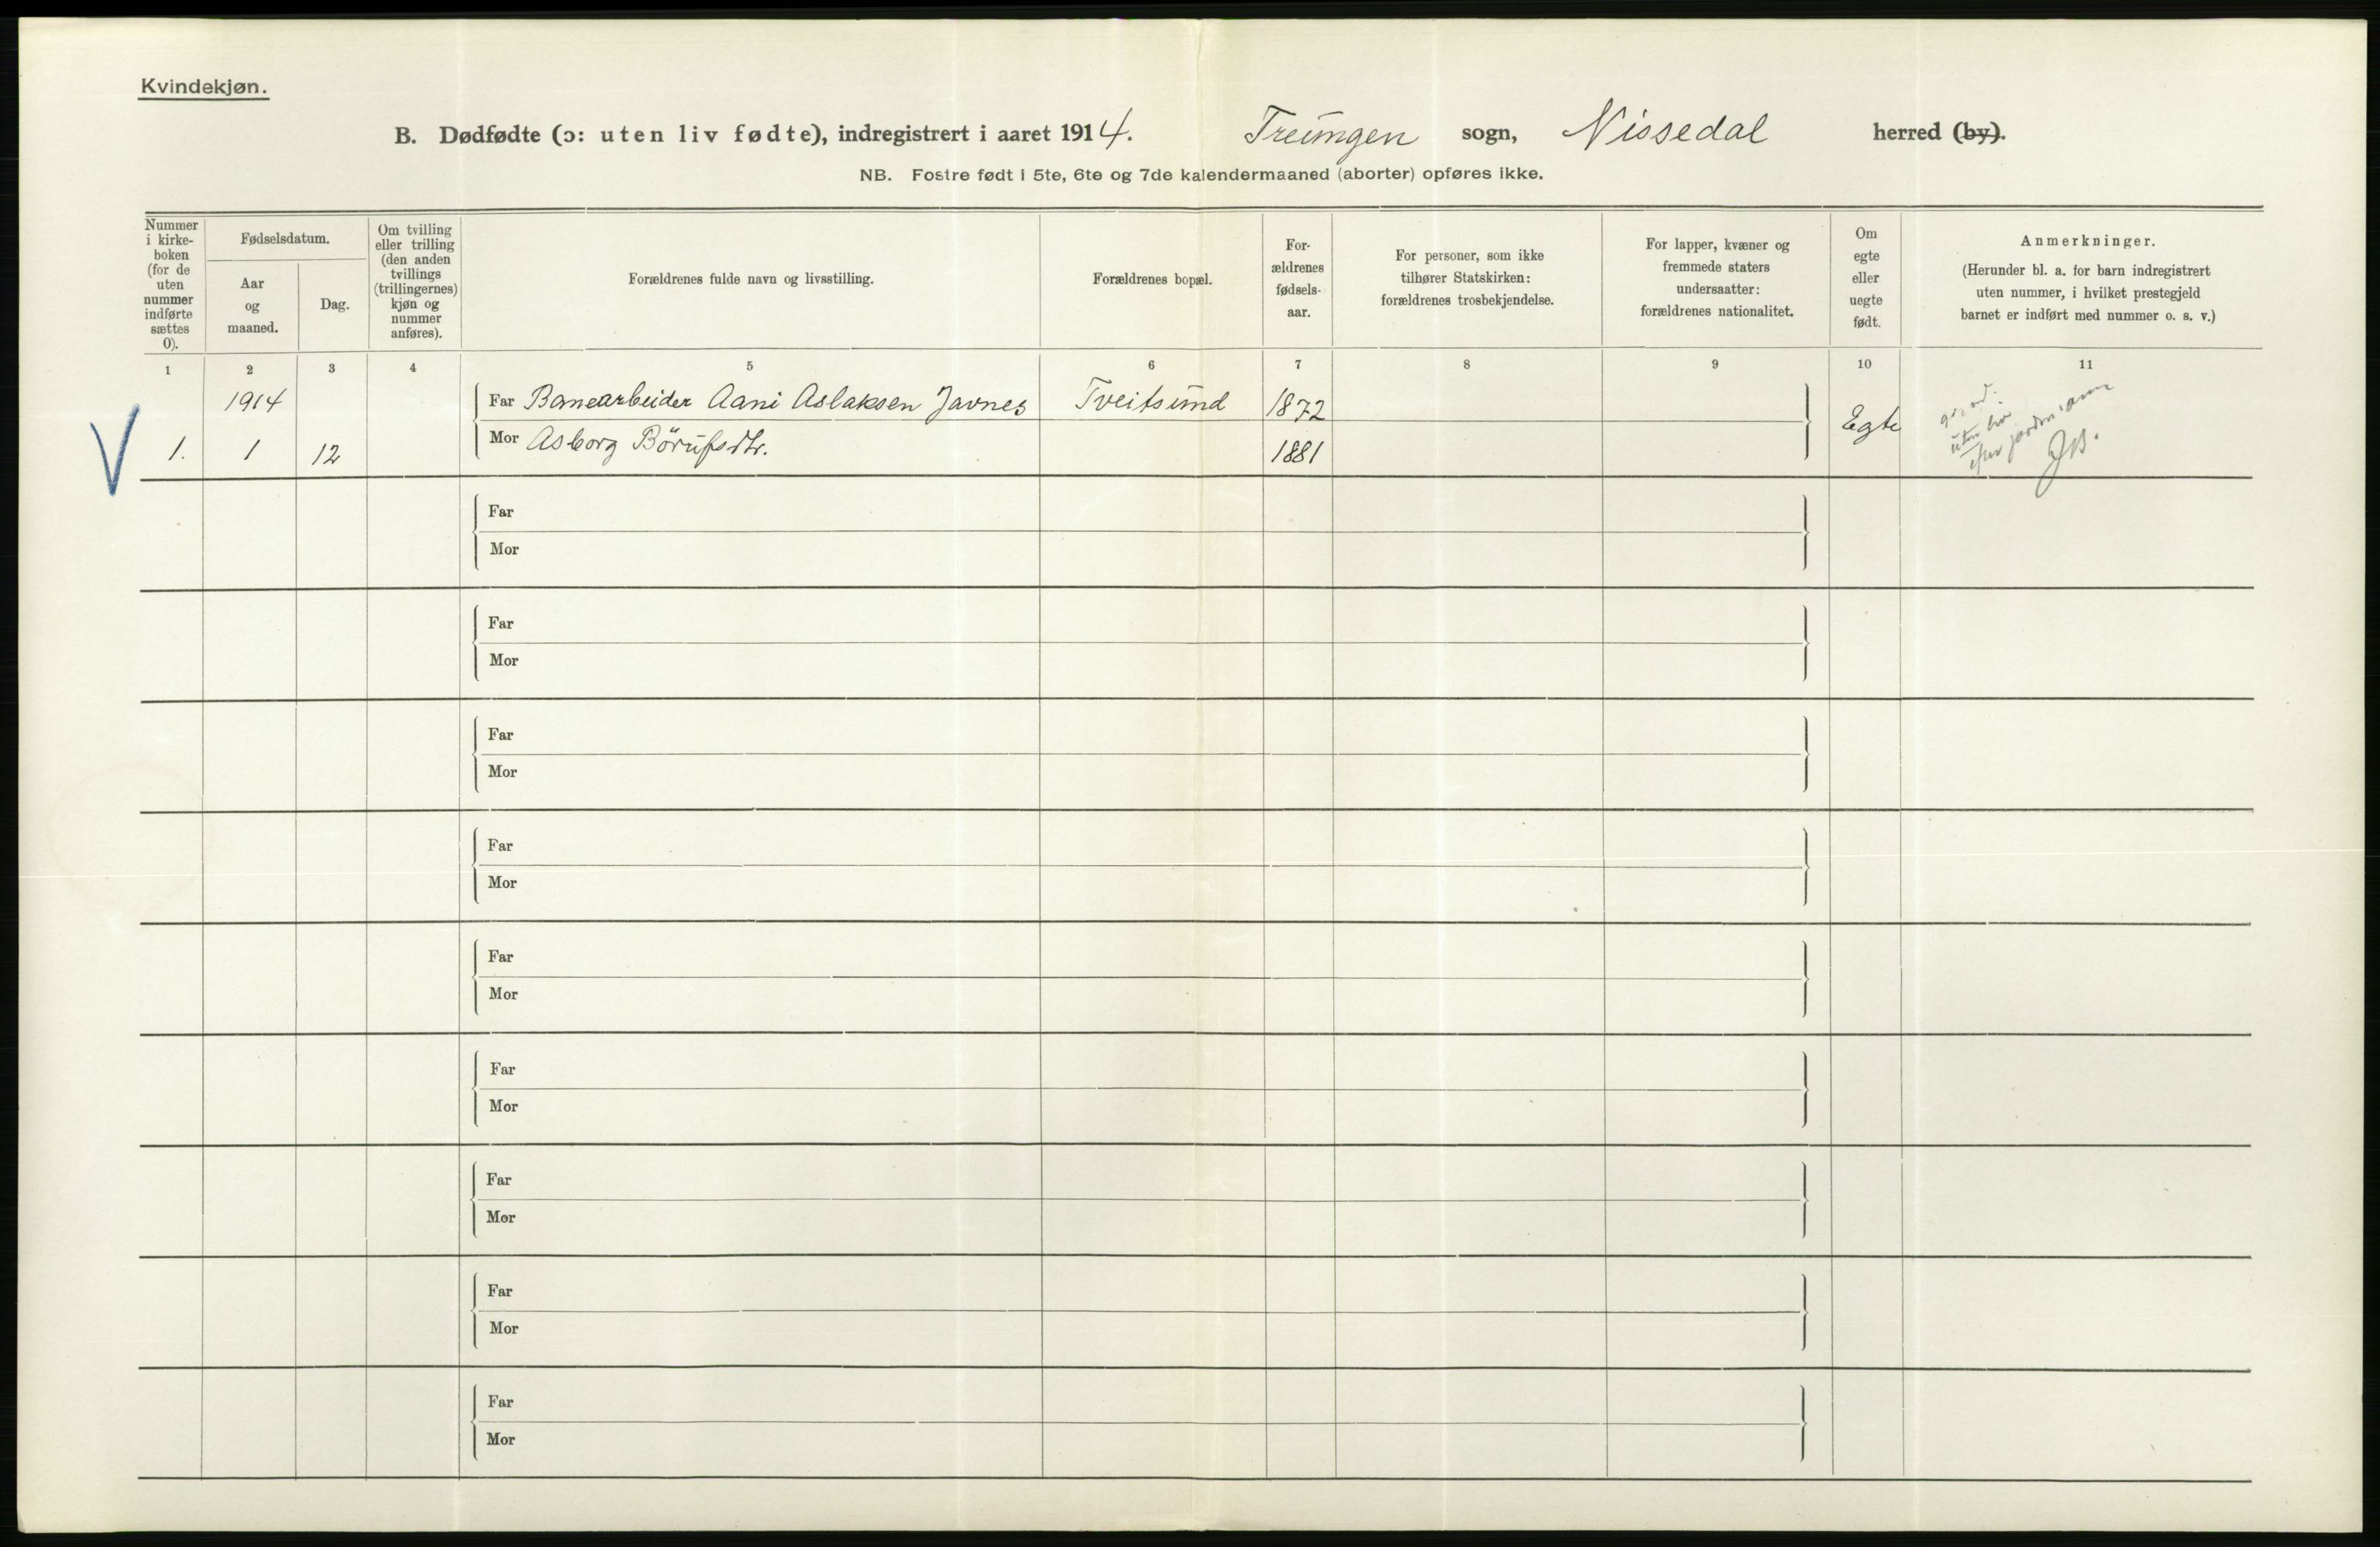 Kvindekjøn.
B. Dødfødte (ɔ: uten liv fødte), indregistrert i aaret 1914. Treungen sogn, Nissedal herred (by).
NB. Fostre født i 5te, 6te og 7de kalendermaaned (aborter) opføres ikke.
Nummer
i kirke-
boken
(for de
uten
nummer
indførte
sættes
0).
Fødselsdatum.
Aar
og
maaned.
Dag.
Om tvilling
eller trilling
(den anden
tvillings
(trillingernes)
kjøn og
nummer
anføres).
Forældrenes fulde navn og livsstilling.
Forældrenes bopæl.
For-
ældrenes
fødsels-
aar.
For personer, som ikke
tilhører Statskirken:
forældrenes trosbekjendelse.
For lapper, kvæner og
fremmede staters
undersaatter:
forældrenes nationalitet.
Om
egte
eller
uegte
født.
Anmerkninger.
(Herunder bl. a. for barn indregistrert
uten nummer, i hvilket prestegjeld
barnet er indført med nummer o. s. v.)
1 2 3 4 5 6 7 8 9 10 11
1914 Far Banearbeider Aani Aslaksen Javnes Tveitsund 1872
1. 1 12 Mor Asborg Börufsdtr. 1881 Egte
uten liv
efter jordm
JB.
Far
Mor
Far
Mor
Far
Mor
Far
Mor
Far
Mor
Far
Mor
Far
Mor
Far
Mor
Far
Mor